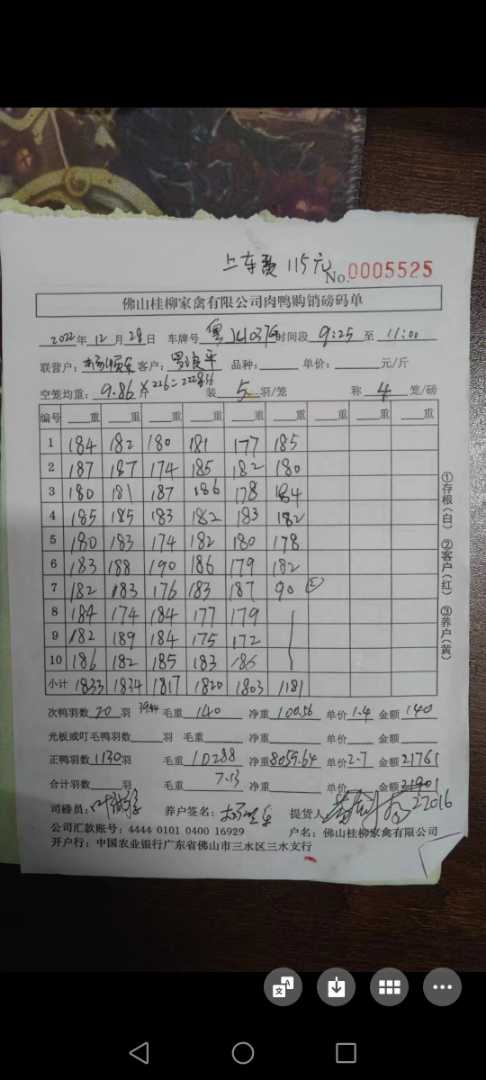 上车费 115元
No.0005525
佛山桂柳家禽有限公司肉鸭购销磅码单
2022年12月28日 车牌号 粤 时间段 9:25 至 11:00
联营户: 客户: 品种: 单价: 元/斤
空笼均重: 9.86 × 226= 装 5 羽/笼 称 4 笼/磅
编号 重 重 重 重 重 重 重 重 重
1 184 182 180 181 177 185
2 187 187 174 185 182 180
3 180 181 187 186 178 184
4 185 185 183 182 183 182
5 180 183 174 182 180 178
6 183 188 190 186 179 182
7 182 183 176 183 187 90 ②
8 184 174 184 177 179
9 182 189 184 175 172
10 186 182 185 183 186
小计 1833 1834 1817 1820 1803 1181
①存根(白) ②客户(红) ③养户(黄)
次鸭羽数 20 羽 毛重 140 净重 100.56 单价 1.4 金额 140
光板或叮毛鸭羽数 羽 毛重 净重 单价 金额
正鸭羽数 1130 羽 毛重 10288 净重 8059.64 单价 2.7 金额 21761
合计羽数 羽 毛重 7.13 净重 单价 金额 21901
司磅员: 养户签名: 提货人 22016
公司汇款账号: 4444 0101 0400 16929 户名: 佛山桂柳家禽有限公司
开户行: 中国农业银行广东省佛山市三水区三水支行